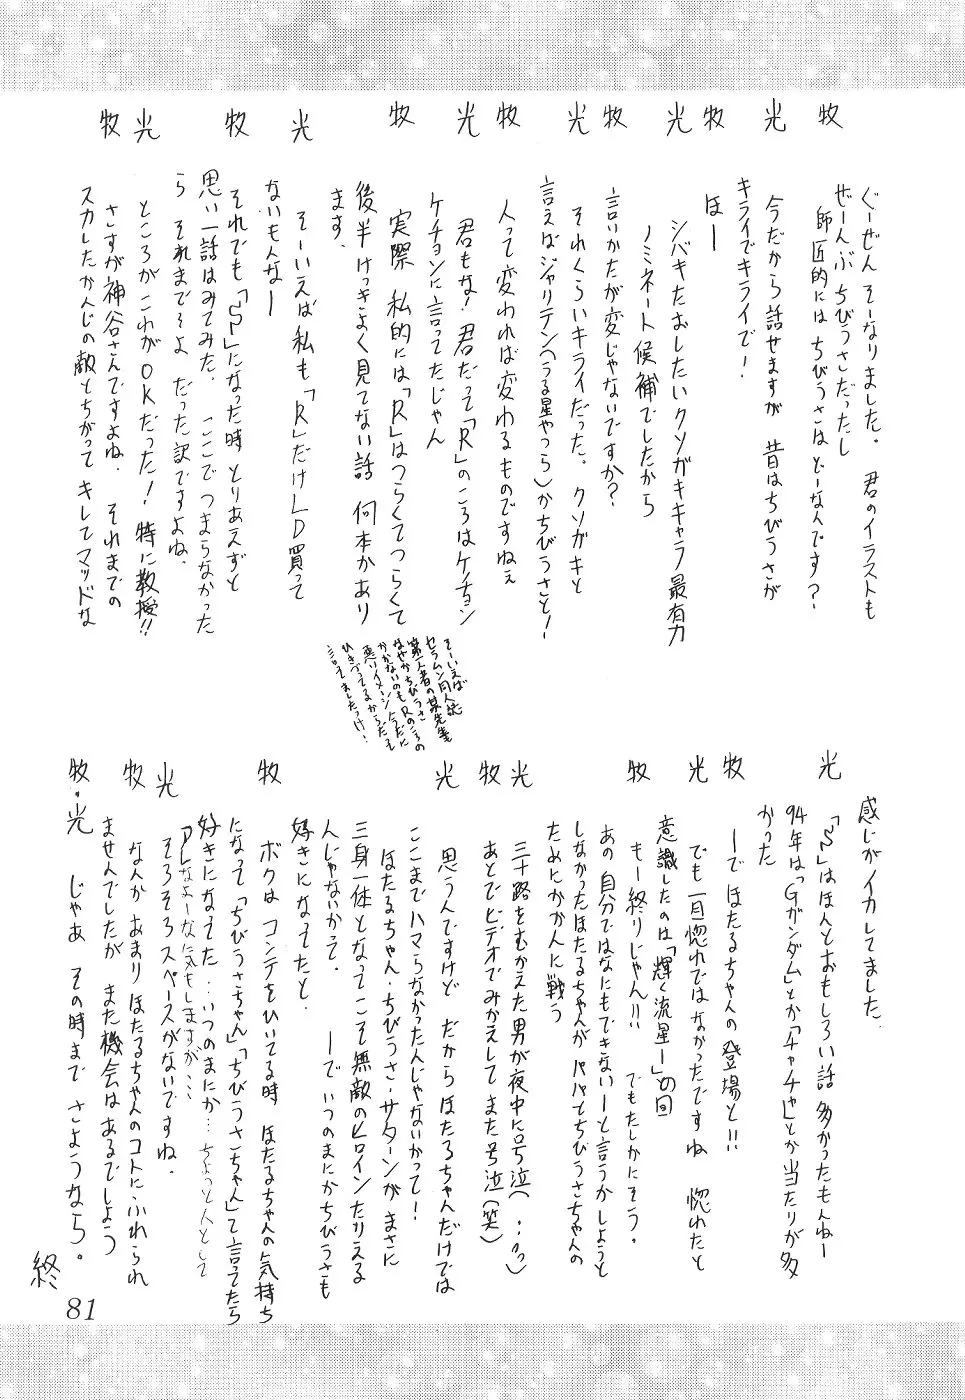 ぐーぜんそーなりました。 君のイラストも
ぜーんぶちびうさだったし
牧 師匠的にはちびうさはどーなんです?
光 今だから話せますが 昔はちびうさが
キライでキライで!
牧 ほー
光 シバキたおしたいクソガキキャラ最有力
ノミネート候補でしたから
牧 言いかたが変じゃないですか?
光 それくらいキライだった。クソガキと
言えばジャリテン(うる星やつら)かちびうさと!
牧 人って変われば変わるものですねぇ
光 君もな!君だって「R」のころはケチョン
ケチョンに言ってたじゃん
牧 実際 私的には「R」はつらくてつらくて
後半けっきょく見てない話 何本かあり
ます。
光 そーいえば私も「R」だけLD買って
ないもんなー
牧 それでも「S」になった時とりあえずと
思い一話はみてみた。 ここでつまらなかった
ら それまでそよ だった訳ですよね。
光 ところがこれがOKだった!特に教授!!
牧 さすが神谷さんですよね。 それまでの
スカしたかんじの敵とちがってキしてマッドな
そーいえば
セラムン同人誌
第一人者の某先生も
なぜかちびうさ
かかないのもRのころの
悪いイメージ今だに
ひきづってるからだって
言ってましたっけ!
感じがイカしてました
光 「S」はほんとおもしろい話 多かったもんねー
94年は「Gガンダム」とか「チャチャ」とか当たりが多
かった
牧 ーでほたるちゃんの登場と!!
光 でも一目惚れではなかったですね 惚れたと
意識したのは「輝く流星ー」の回
牧 もー終りじゃん!! でもたしかにそう。
あの自分ではなにもできないーと言うかしようと
しなかったほたるちゃんが パパとちびうさちゃんの
ためにかかんに戦う
光 三十路をむかえた男が夜中に号泣(
牧 あとでビデオでみかえして また号泣(笑)
光 思うんですけど だからほたるちゃんだけでは
ここまでハマらなかったんじゃないかって!
ほたるちゃん・ちびうさ・サターンが まさに
三身一体となってこそ無敵のヒロインたりえる
んじゃないかって。 ーで いつのまにかちびうさも
好きになってたと
牧 ボクは コンテをひいてる時 ほたるちゃんの気持ち
になって「ちびうさちゃん」「ちびうさちゃん」て言ってたら
好きになってた‥いつのまにか‥ちょっと人として
アレなよーな気もしますが…
光 そろそろスペースがないですね。
牧 なんか あまり ほたるちゃんのコトにふれられ
ませんでしたが また機会はあるでしょう
牧・光 じゃあ その時まで さようなら。
終
81